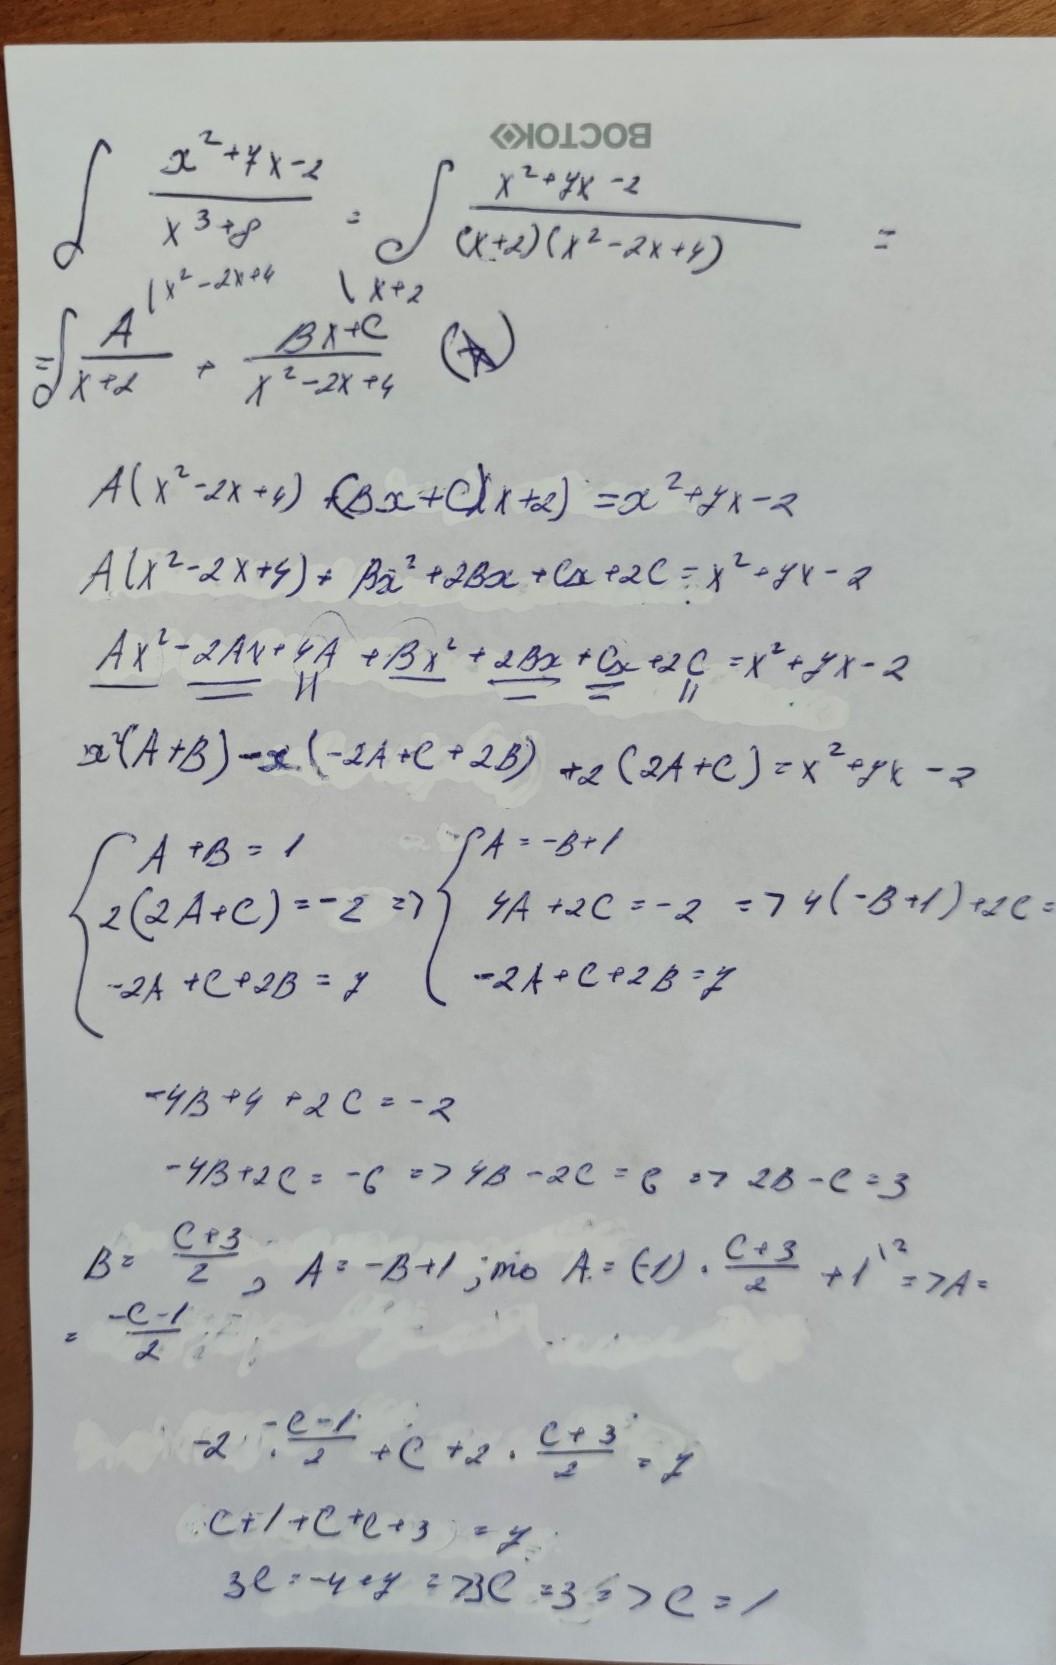 ВОСТОК
∫ x²+7x-2 / x³+8 = ∫ x²+7x-2 / (x+2)(x²-2x+4) =
(x²-2x+4 (x+2
=∫ A / x+2 + Bx+C / x²-2x+4
A(x²-2x+4) +(Bx+C)(x+2) =x²+7x-2
A(x²-2x+4)+ Bx²+2Bx+Cx+2C=x²+7x-2
Ax²-2Ax+4A+Bx²+2Bx+Cx+2C=x²+7x-2
x²(A+B)-x(-2A+C+2B) +2(2A+C)=x²+7x-2
{ A+B=1 { A=-B+1
2(2A+C)=-2 => 4A+2C=-2 => 4(-B+1)+2C=
-2A+C+2B=7 -2A+C+2B=7
-4B+4+2C=-2
-4B+2C=-6 => 4B-2C=6 => 2B-C=3
B= C+3 / 2, A=-B+1; то A=(-1)· C+3 / 2 +1\² => A=
= -C-1 / 2
-2 · -C-1 / 2 +C+2 · C+3 / 2 =7
C+1+C+C+3=7
3C=-4+7 =>3C=3 => C=1